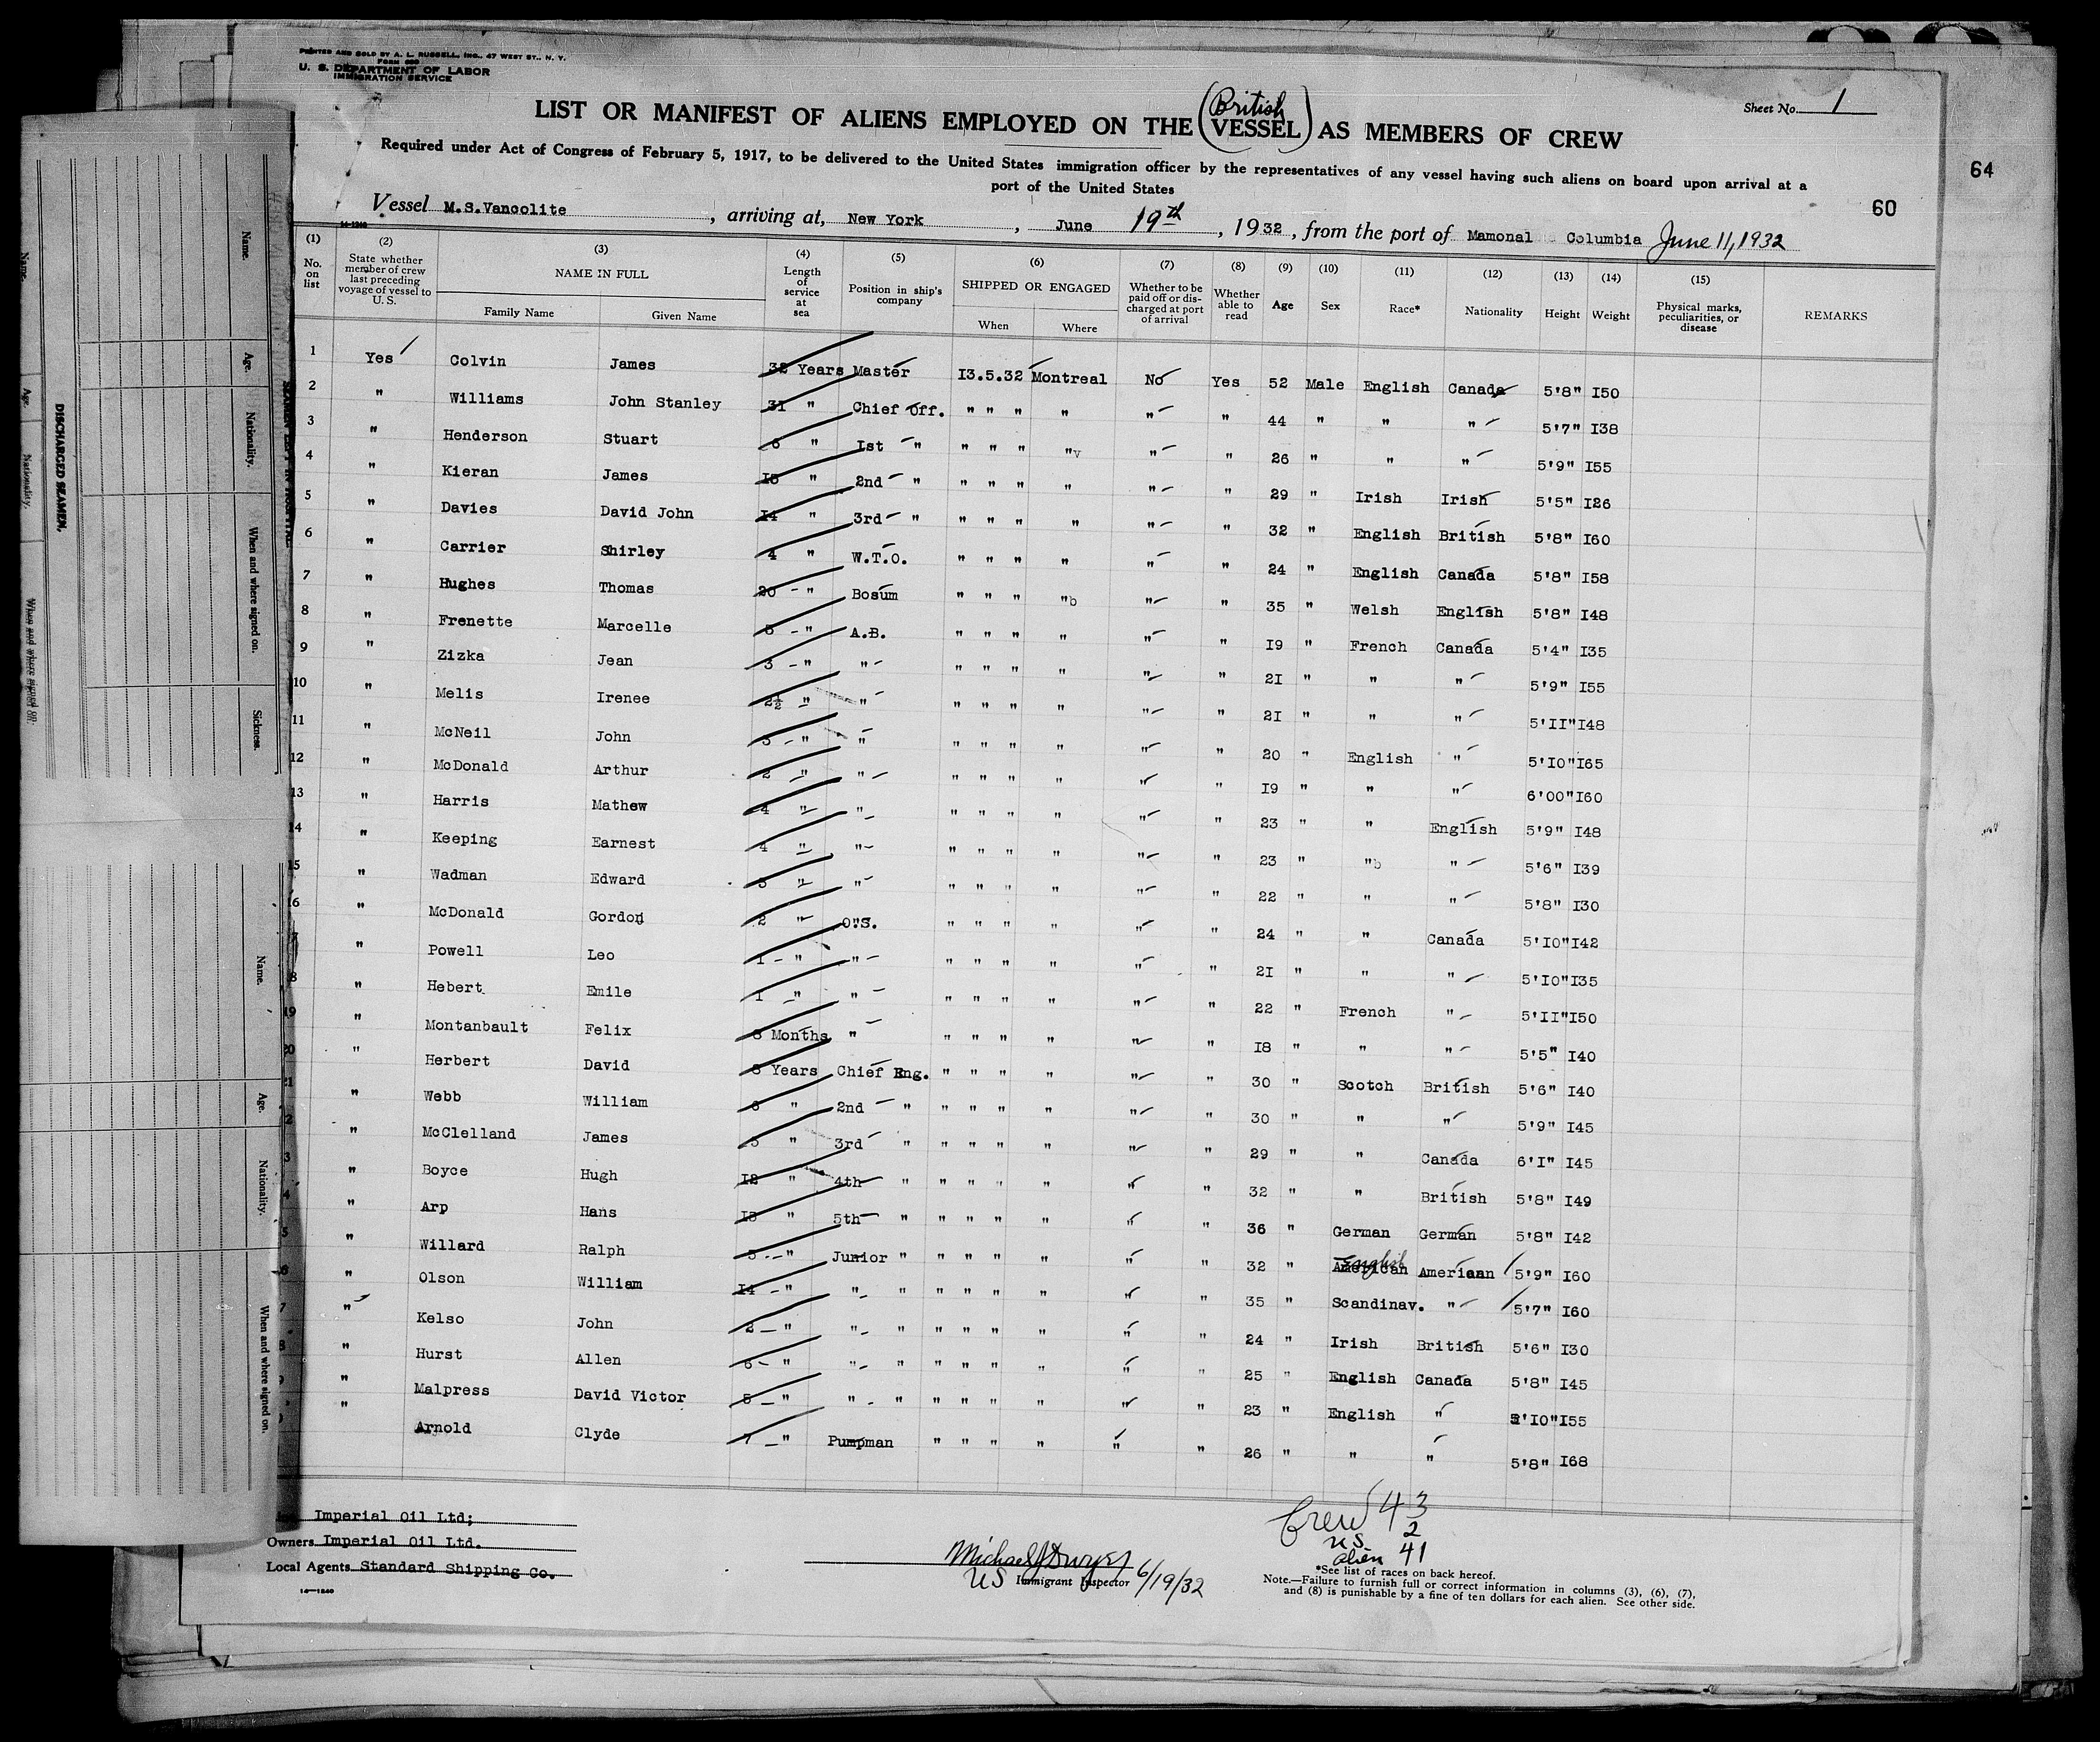 PRINTED AND SOLD BY A. L. RUSSELL, INC., 47 WEST ST., N. Y.
U. S. DEPARTMENT OF LABOR
IMMIGRATION SERVICE
Sheet No. 1
LIST OR MANIFEST OF ALIENS EMPLOYED ON THE (British VESSEL) AS MEMBERS OF CREW
Required under Act of Congress of February 5, 1917, to be delivered to the United States immigration officer by the representatives of any vessel having such aliens on board upon arrival at a
port of the United States
64
60
Vessel M.S.Vancolite, arriving at, New York, June 19th, 1932, from the port of Mamonal Columbia June 11, 1932
(1) (2) (3) (4) (5) (6) (7) (8) (9) (10) (11) (12) (13) (14) (15)
No. on list | State whether member of crew last preceding voyage of vessel to U. S. | NAME IN FULL | Family Name | Given Name | Length of service at sea | Position in ship's company | SHIPPED OR ENGAGED | When | Where | Whether to be paid off or discharged at port of arrival | Whether able to read | Age | Sex | Race* | Nationality | Height | Weight | Physical marks, peculiarities, or disease | REMARKS
1 Yes Colvin James 32 Years Master I3.5.32 Montreal No Yes 52 Male English Canada 5'8" I50
2 " Williams John Stanley 3I " Chief Off. " " " " " " 44 " " " 5'7" I38
3 " Henderson Stuart 6 " Ist " " " " "v " " 26 " " " 5'9" I55
4 " Kieran James " 2nd " " " " " " " 29 " Irish Irish 5'5" I26
5 " Davies David John I4 " 3rd " " " " " " " 32 " English British 5'8" I60
6 " Carrier Shirley 4 " W.T.O. " " " " " " 24 " English Canada 5'8" I58
7 " Hughes Thomas 20 " Bosum " " " "b " " 35 " Welsh English 5'8" I48
8 " Frenette Marcelle " A.B. " " " " " " I9 " French Canada 5'4" I35
9 " Zizka Jean 3 " " " " " " " " 2I " " " 5'9" I55
10 " Melis Irenee 2½ " " " " " " " " 2I " " " 5'II" I48
11 " McNeil John " " " " " " " " 20 " English " 5'I0" I65
12 " McDonald Arthur 2 " " " " " " " " I9 " " " 6'00" I60
13 " Harris Mathew 4 " " " " " " " " 23 " " English 5'9" I48
14 " Keeping Earnest 4 " " " " " " " " 23 " "b " 5'6" I39
15 " Wadman Edward " " " " " " " " 22 " " " 5'8" I30
16 " McDonald Gordon 2 " O.S. " " " " " " 24 " " Canada 5'I0" I42
" Powell Leo 1 " " " " " " " " 2I " " " 5'I0" I35
8 " Hebert Emile 1 " " " " " " " " 22 " French " 5'II" I50
19 " Montanbault Felix 8 Months " " " " " " " I8 " " " 5'5" I40
20 " Herbert David 8 Years Chief Eng. " " " " " " 30 " Scotch British 5'6" I40
21 " Webb William " 2nd " " " " " " " 30 " " " 5'9" I45
2 " McClelland James " 3rd " " " " " " " 29 " " Canada 6'I" I45
3 " Boyce Hugh I2 " 4th " " " " " " " 32 " " British 5'8" I49
4 " Arp Hans " 5th " " " " " " " 36 " German German 5'8" I42
5 " Willard Ralph " Junior " " " " " " " 32 " American English American 5'9" I60
6 " Olson William I4 " " " " " " " " " 35 " Scandinav. " 5'7" I60
7 " Kelso John 2 " " " " " " " " " 24 " Irish British 5'6" I30
8 " Hurst Allen 6 " " " " " " " " " 25 " English Canada 5'8" I45
" Malpress David Victor 5 " " " " " " " " " 23 " English " 5'I0" I55
" Arnold Clyde 7 " Pumpman " " " " " " 26 " " " 5'8" I68
Imperial Oil Ltd;
Owners Imperial Oil Ltd.
Local Agents Standard Shipping Co.
14—1240
Michael J Dwyer
US Immigrant Inspector 6/19/32
Crew 43
US 2
alien 41
*See list of races on back hereof.
Note.—Failure to furnish full or correct information in columns (3), (6), (7),
and (8) is punishable by a fine of ten dollars for each alien. See other side.
DISCHARGED SEAMEN.
Name.
Age.
Nationality.
When and where signed on.
Sickness.
Name.
Age.
Nationality.
When and where signed on.
Name.
Age.
Nationality.
When and where signed on.